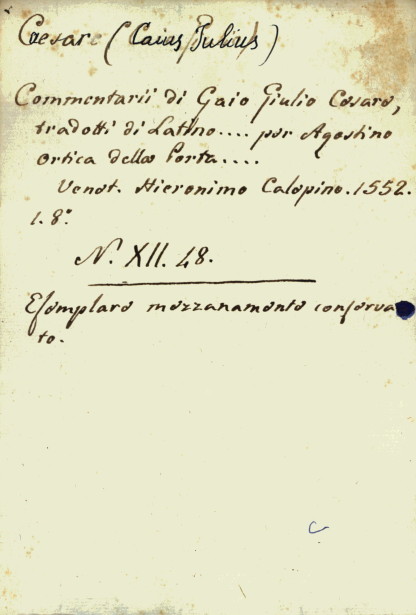 Caesar (Caius Julius)
Commentarii di Gaio Giulio Cesare,
tradotti di Latino.... per Agostino
Ortica della Porta....
Venet. Hieronimo Calepino. 1552.
1. 8.°
N. XII. 48.
Esemplare mezzanamente conserva
to.
C